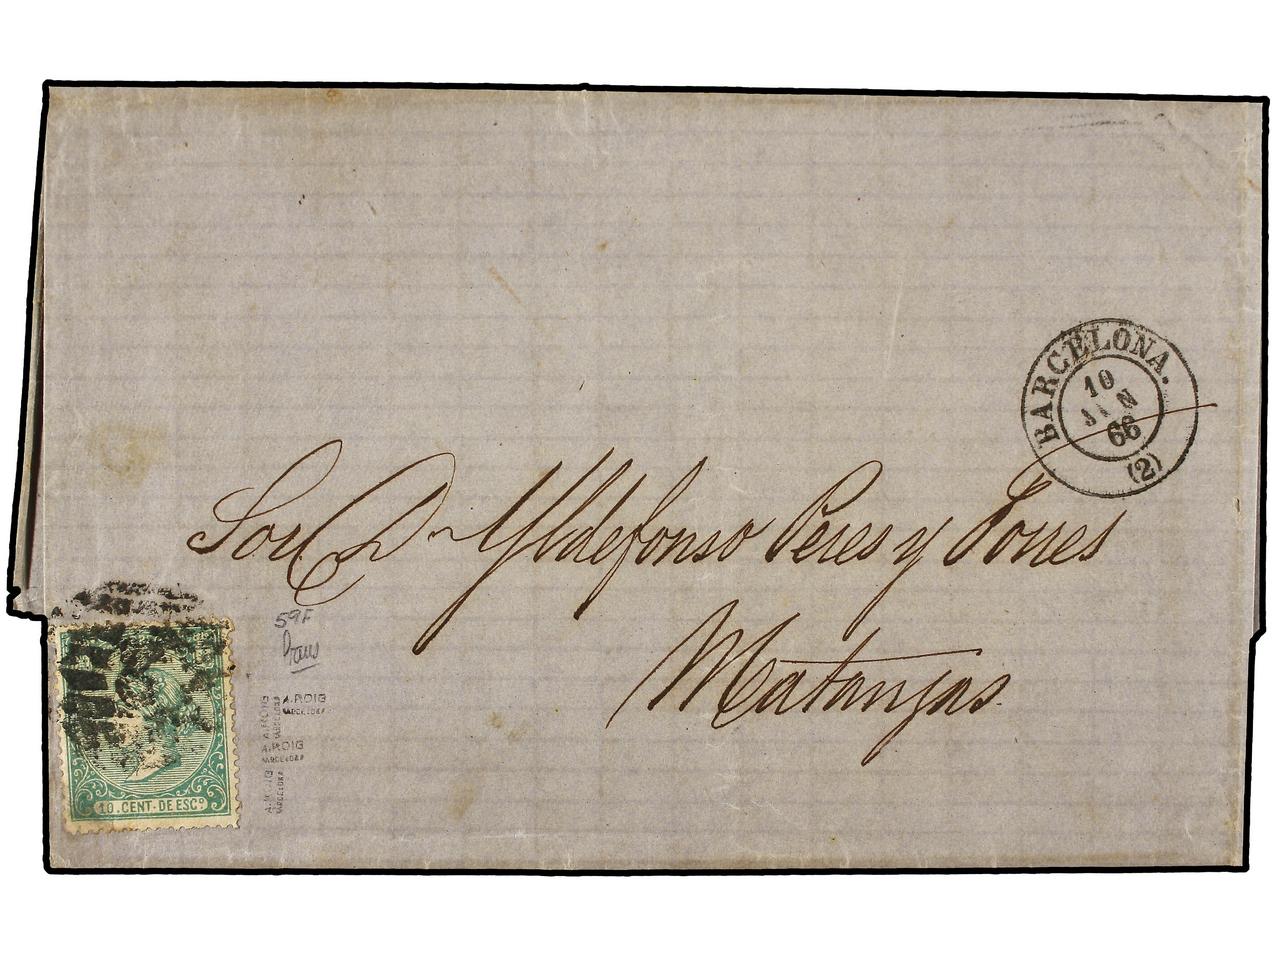 BARCELONA.
10
JUN
66
(2)
Sor. Dn Yldefonso Peres y Torres
Matanzas.
59F
A. ROIG
BARCELONA
A. ROIG
BARCELONA
A. ROIG
BARCELONA
A. ROIG
BARCELONA
10. CENT. DE ESCº.